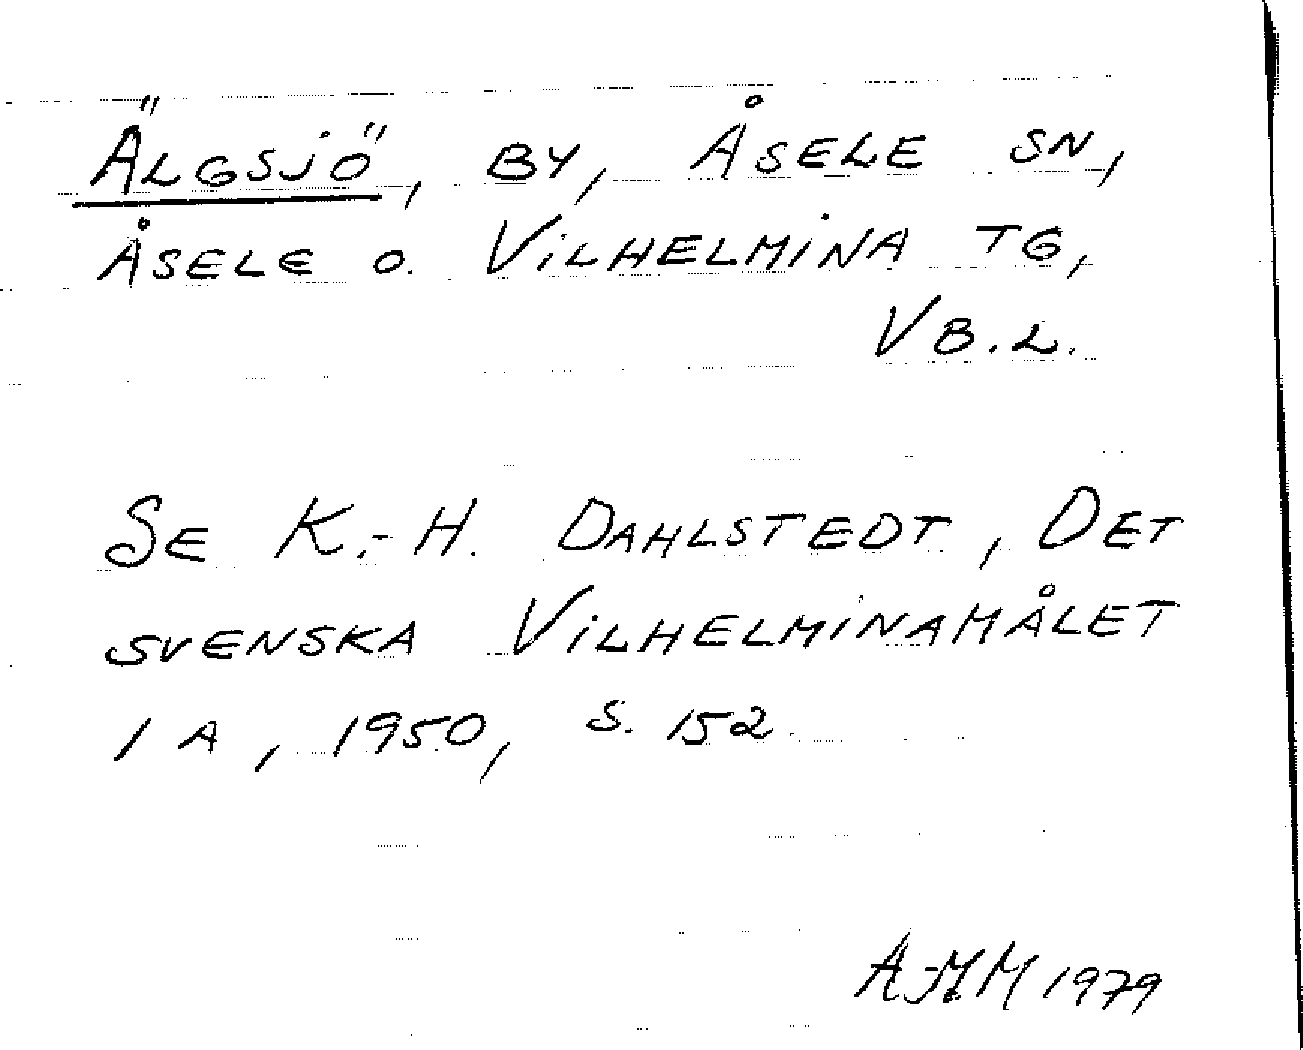 ÄLGSJÖ, BY, ÅSELE SN,
ÅSELE O. VILHELMINA TG,
VB.L.
SE K.-H. DAHLSTEDT, DET
SVENSKA VILHELMINAMÅLET
1 A, 1950, S. 152
A-MM 1979